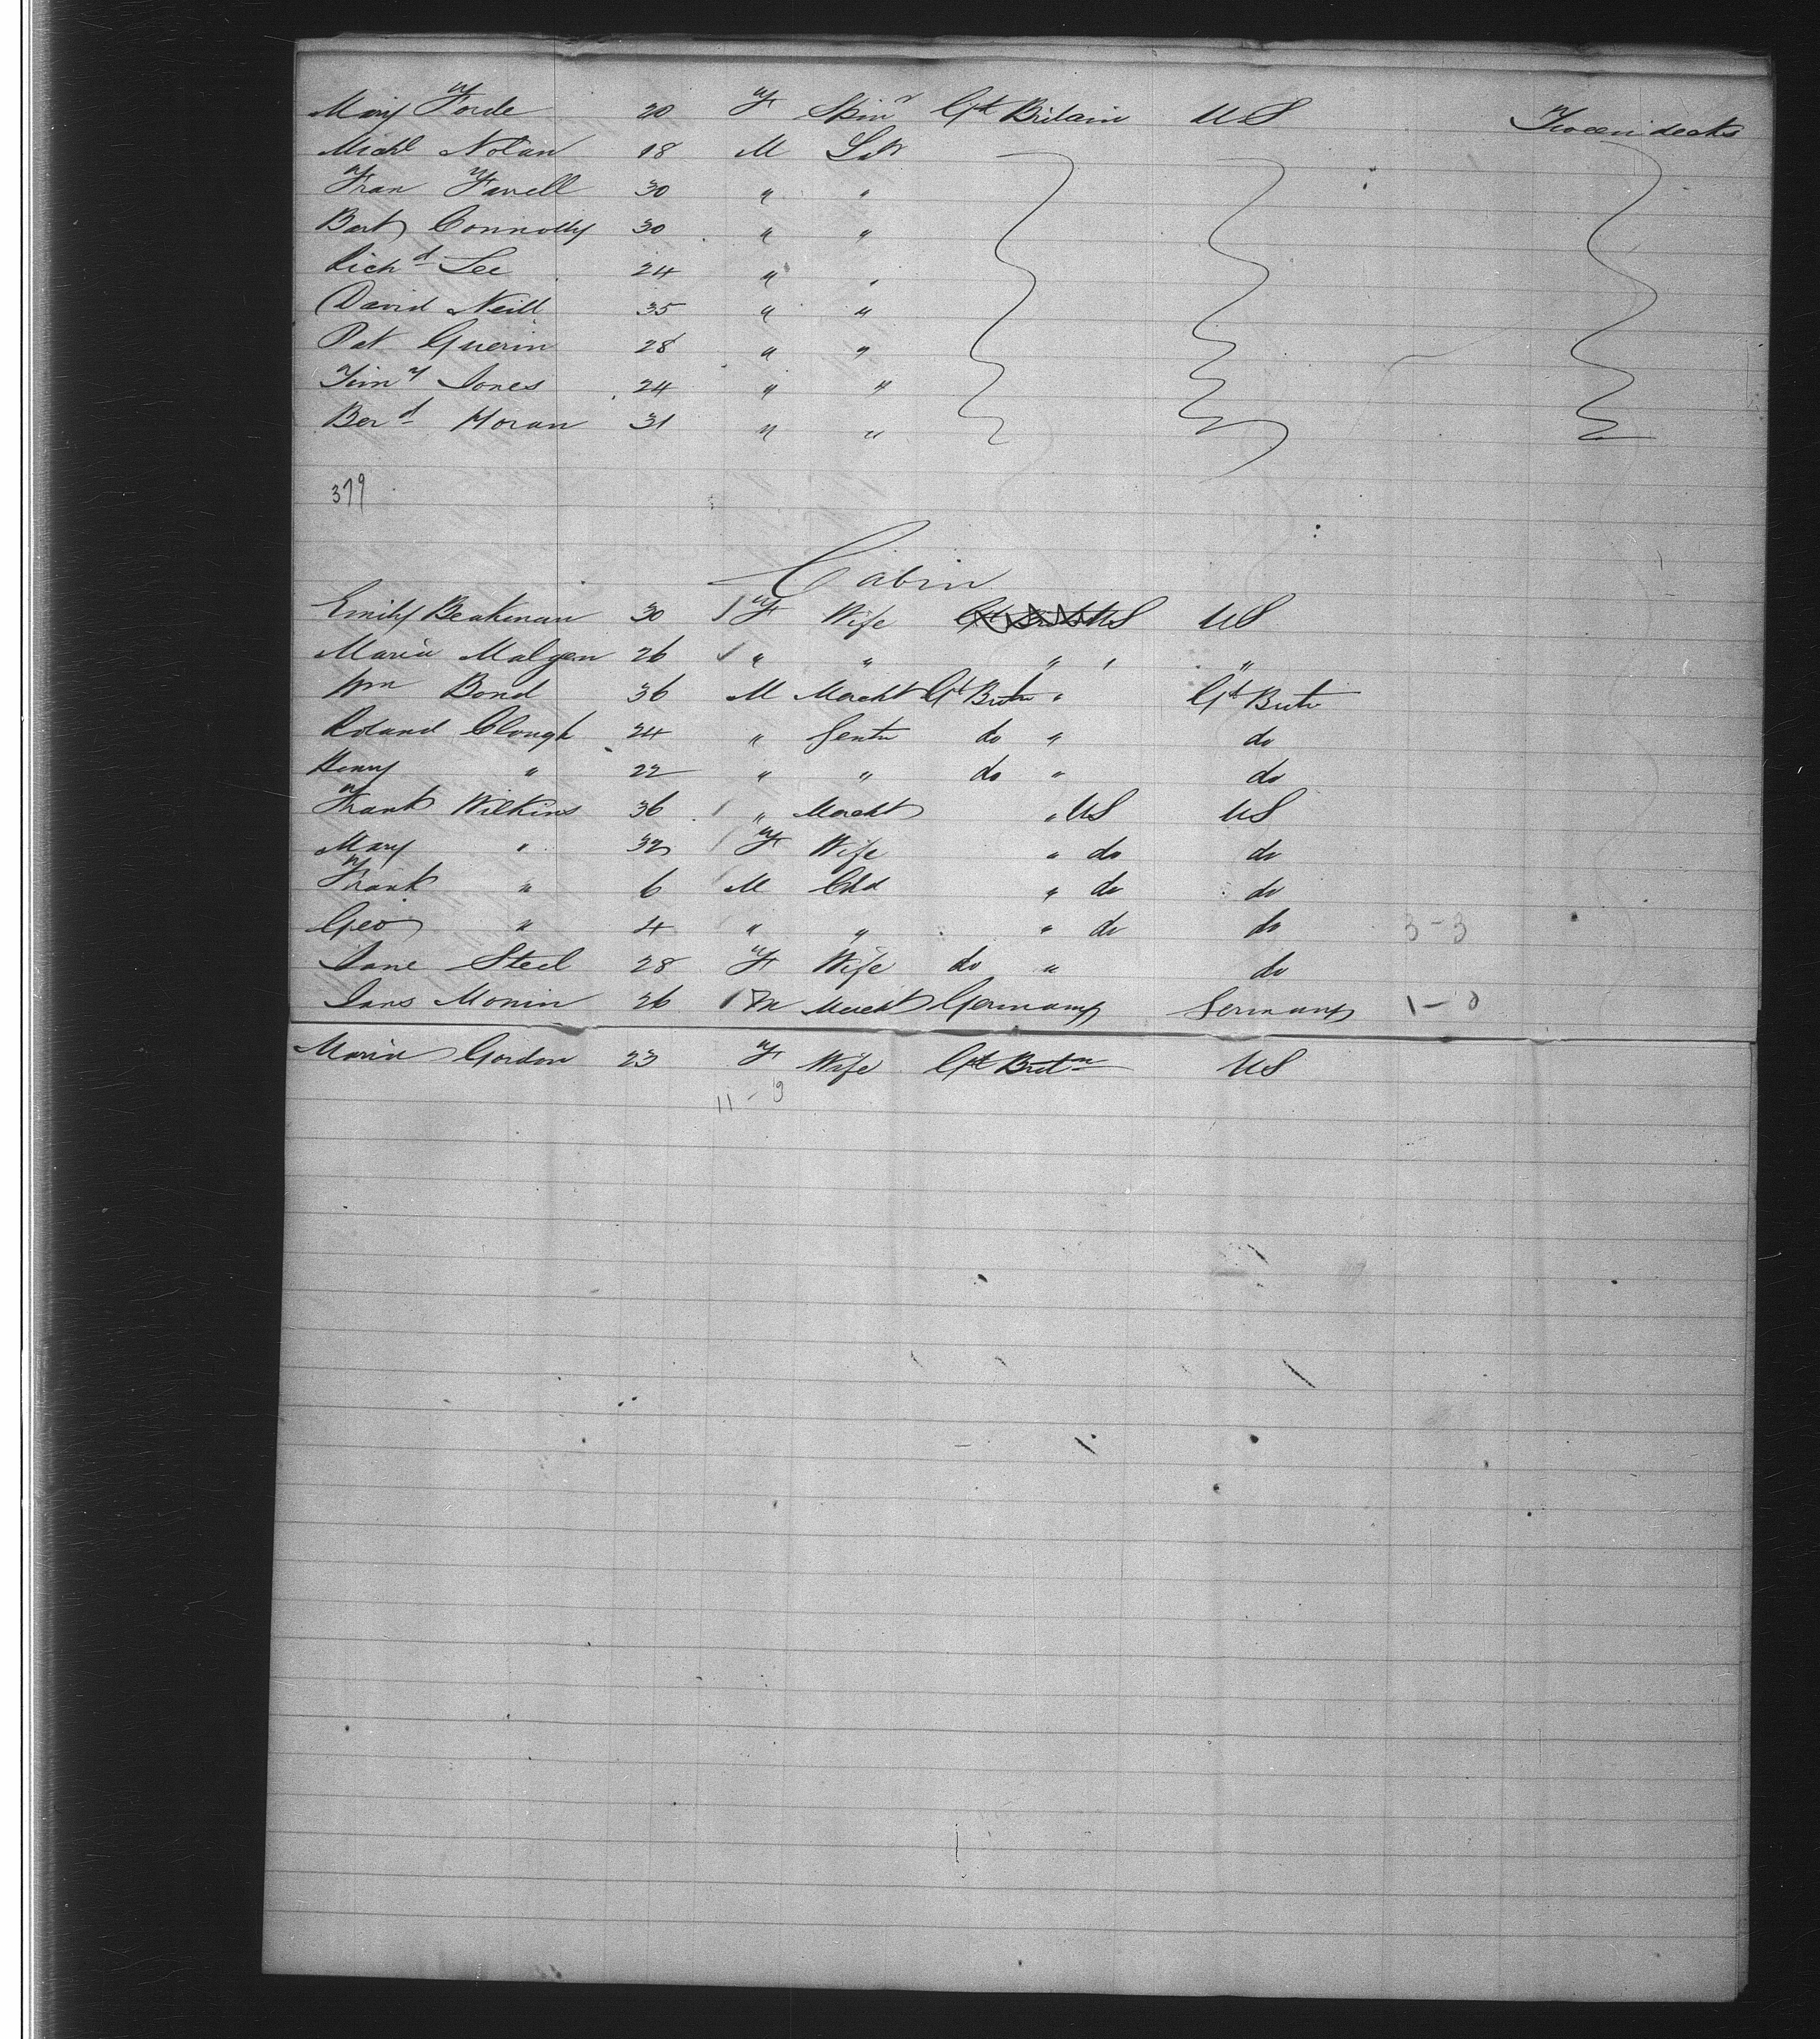 Mary Forde 20 F Spinr Gt Britain US Tween decks
Michl Nolan 18 M Labr
Fran Farrell 30 " "
Bart Connolly 30 " "
Richd Lee 24 " "
David Neill 35 " "
Pat Guerin 28 " "
Timy Jones 24 " "
Berd Horan 31 " "
379
Cabin
Emily Beakman 30 F Wife US US
Maria Malgen 26 " " " "
Wm Bond 36 M Mercht Gt Britn " Gt Britn
Roland Clough 24 " Gentn do " do
Henry " 22 " " do " do
Frank Wilkins 36 " Mercht " US US
Mary " 32 F Wife " do do
Frank " 6 M Chld " do do
Geo " 4 " " " do do 3-3
Jane Steel 28 F Wife do " do
Jans Monin 26 M Mercht Germany Germany 1-0
Maria Gordon 23 F Wife Gt Britn US
11-9